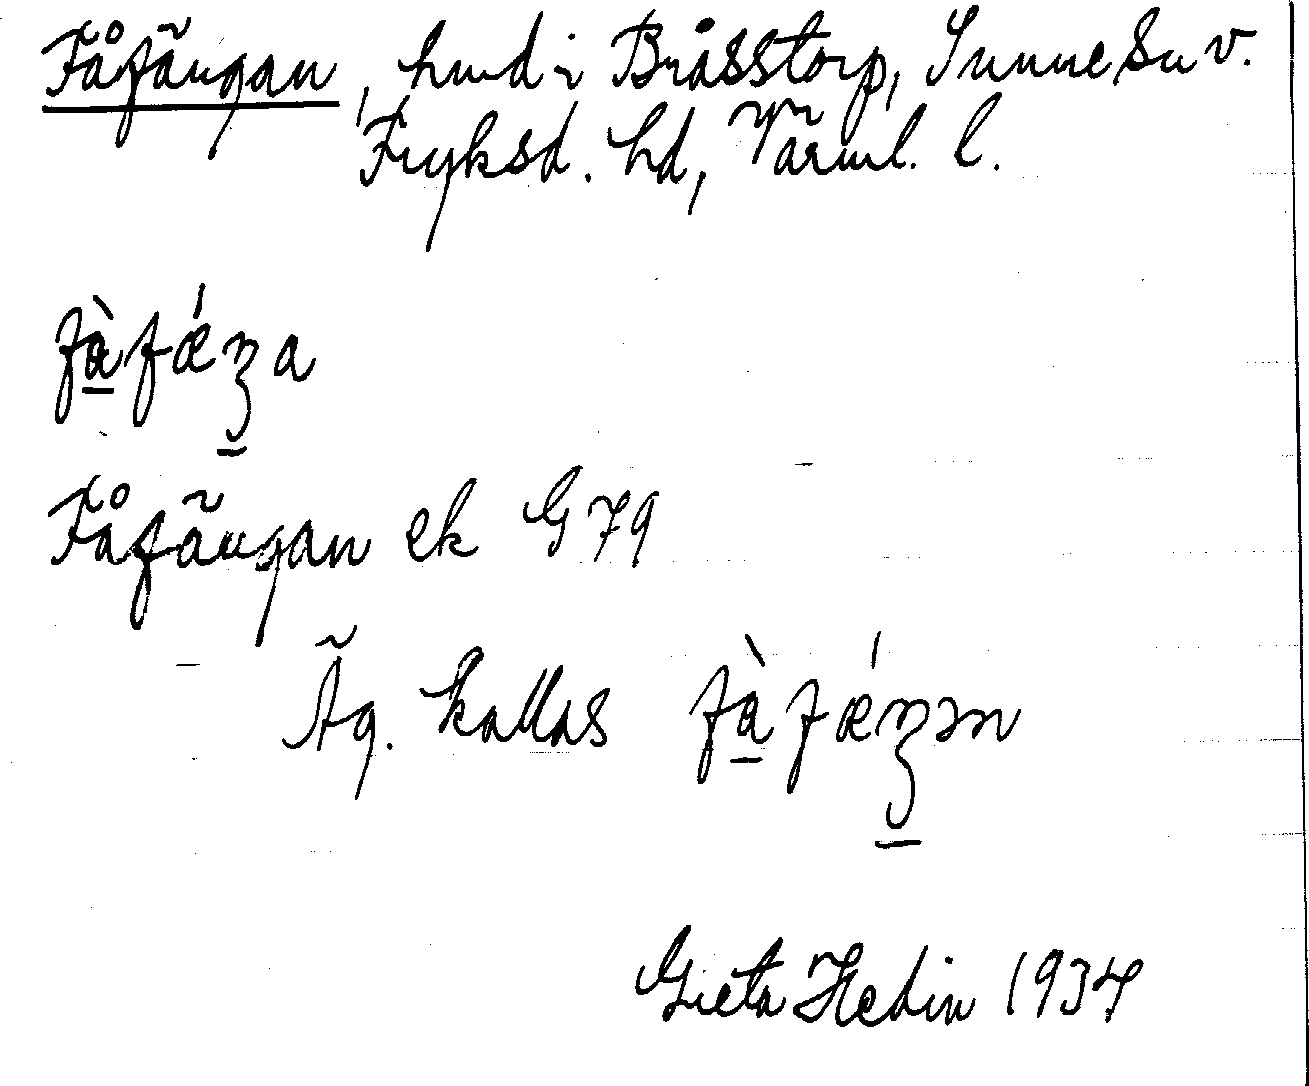 Fåfängan, hmd i Bråsstorp, Sunne sn v.
Fryksd. hd, Värml. l.
fàfǽŋa
Fåfängan ek G 79
Äg. kallas fàfǽŋən
Greta Hedin 1934